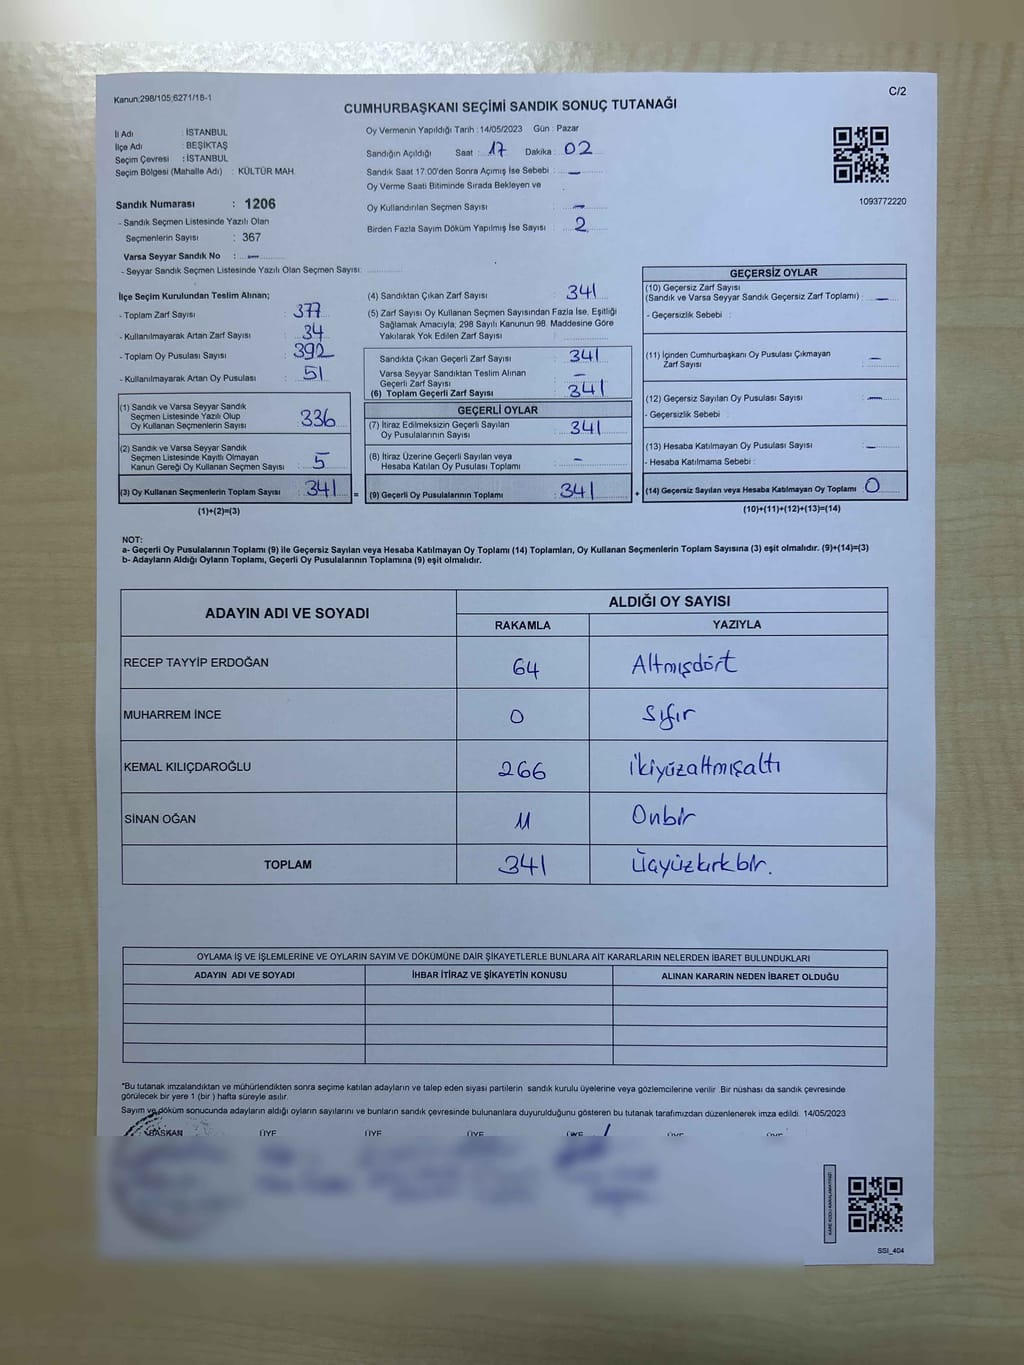 Kanun:298/105;6271/18-1
C/2
CUMHURBAŞKANI SEÇİMİ SANDIK SONUÇ TUTANAĞI
İl Adı : İSTANBUL
İlçe Adı : BEŞİKTAŞ
Seçim Çevresi : İSTANBUL
Seçim Bölgesi (Mahalle Adı) : KÜLTÜR MAH.
Oy Vermenin Yapıldığı Tarih : 14/05/2023 Gün : Pazar
Sandığın Açıldığı Saat : 17 Dakika : 02
Sandık Saat 17.00'den Sonra Açımış İse Sebebi : —
Oy Verme Saati Bitiminde Sırada Bekleyen ve
Oy Kullandırılan Seçmen Sayısı : —
Birden Fazla Sayım Döküm Yapılmış İse Sayısı : 2
1093772220
Sandık Numarası : 1206
- Sandık Seçmen Listesinde Yazılı Olan
Seçmenlerin Sayısı : 367
Varsa Seyyar Sandık No : —
- Seyyar Sandık Seçmen Listesinde Yazılı Olan Seçmen Sayısı:
İlçe Seçim Kurulundan Teslim Alınan;
- Toplam Zarf Sayısı : 377
- Kullanılmayarak Artan Zarf Sayısı : 34
- Toplam Oy Pusulası Sayısı : 392
- Kullanılmayarak Artan Oy Pusulası : 51
(1) Sandık ve Varsa Seyyar Sandık
Seçmen Listesinde Yazılı Olup
Oy Kullanan Seçmenlerin Sayısı : 336
(2) Sandık ve Varsa Seyyar Sandık
Seçmen Listesinde Kayıtlı Olmayan
Kanun Gereği Oy Kullanan Seçmen Sayısı : 5
(3) Oy Kullanan Seçmenlerin Toplam Sayısı : 341
(1)+(2)=(3)
(4) Sandıktan Çıkan Zarf Sayısı : 341
(5) Zarf Sayısı Oy Kullanan Seçmen Sayısından Fazla İse, Eşitliği
Sağlamak Amacıyla; 298 Sayılı Kanunun 98. Maddesine Göre
Yakılarak Yok Edilen Zarf Sayısı :
Sandıkta Çıkan Geçerli Zarf Sayısı : 341
Varsa Seyyar Sandıktan Teslim Alınan
Geçerli Zarf Sayısı : —
(6) Toplam Geçerli Zarf Sayısı : 341
GEÇERLİ OYLAR
(7) İtiraz Edilmeksizin Geçerli Sayılan
Oy Pusulalarının Sayısı : 341
(8) İtiraz Üzerine Geçerli Sayılan veya
Hesaba Katılan Oy Pusulası Toplamı : —
= (9) Geçerli Oy Pusulalarının Toplamı : 341
GEÇERSİZ OYLAR
(10) Geçersiz Zarf Sayısı
(Sandık ve Varsa Seyyar Sandık Geçersiz Zarf Toplamı) : —
- Geçersizlik Sebebi :
(11) İçinden Cumhurbaşkanı Oy Pusulası Çıkmayan
Zarf Sayısı : —
(12) Geçersiz Sayılan Oy Pusulası Sayısı : —
- Geçersizlik Sebebi :
(13) Hesaba Katılmayan Oy Pusulası Sayısı : —
- Hesaba Katılmama Sebebi :
+ (14) Geçersiz Sayılan veya Hesaba Katılmayan Oy Toplamı : 0
(10)+(11)+(12)+(13)=(14)
NOT:
a- Geçerli Oy Pusulalarının Toplamı (9) ile Geçersiz Sayılan veya Hesaba Katılmayan Oy Toplamı (14) Toplamları, Oy Kullanan Seçmenlerin Toplam Sayısına (3) eşit olmalıdır. (9)+(14)=(3)
b- Adayların Aldığı Oyların Toplamı, Geçerli Oy Pusulalarının Toplamına (9) eşit olmalıdır.
ADAYIN ADI VE SOYADI
ALDIĞI OY SAYISI
RAKAMLA YAZIYLA
RECEP TAYYİP ERDOĞAN 64 Altmışdört
MUHARREM İNCE 0 Sıfır
KEMAL KILIÇDAROĞLU 266 ikiyüzaltmışaltı
SİNAN OĞAN 11 Onbir
TOPLAM 341 Üçyüzkırkbir.
OYLAMA İŞ VE İŞLEMLERİNE VE OYLARIN SAYIM VE DÖKÜMÜNE DAİR ŞİKAYETLERLE BUNLARA AİT KARARLARIN NELERDEN İBARET BULUNDUKLARI
ADAYIN ADI VE SOYADI İHBAR İTİRAZ VE ŞİKAYETİN KONUSU ALINAN KARARIN NEDEN İBARET OLDUĞU
*Bu tutanak imzalandıktan ve mühürlendikten sonra seçime katılan adayların ve talep eden siyasi partilerin sandık kurulu üyelerine veya gözlemcilerine verilir Bir nüshası da sandık çevresinde
görülecek bir yere 1 (bir) hafta süreyle asılır.
Sayım ve döküm sonucunda adayların aldığı oyların sayılarını ve bunların sandık çevresinde bulunanlara duyurulduğunu gösteren bu tutanak tarafımızdan düzenlenerek imza edildi. 14/05/2023
BAŞKAN ÜYE ÜYE ÜYE ÜYE ÜYE ÜYE
SSI_404